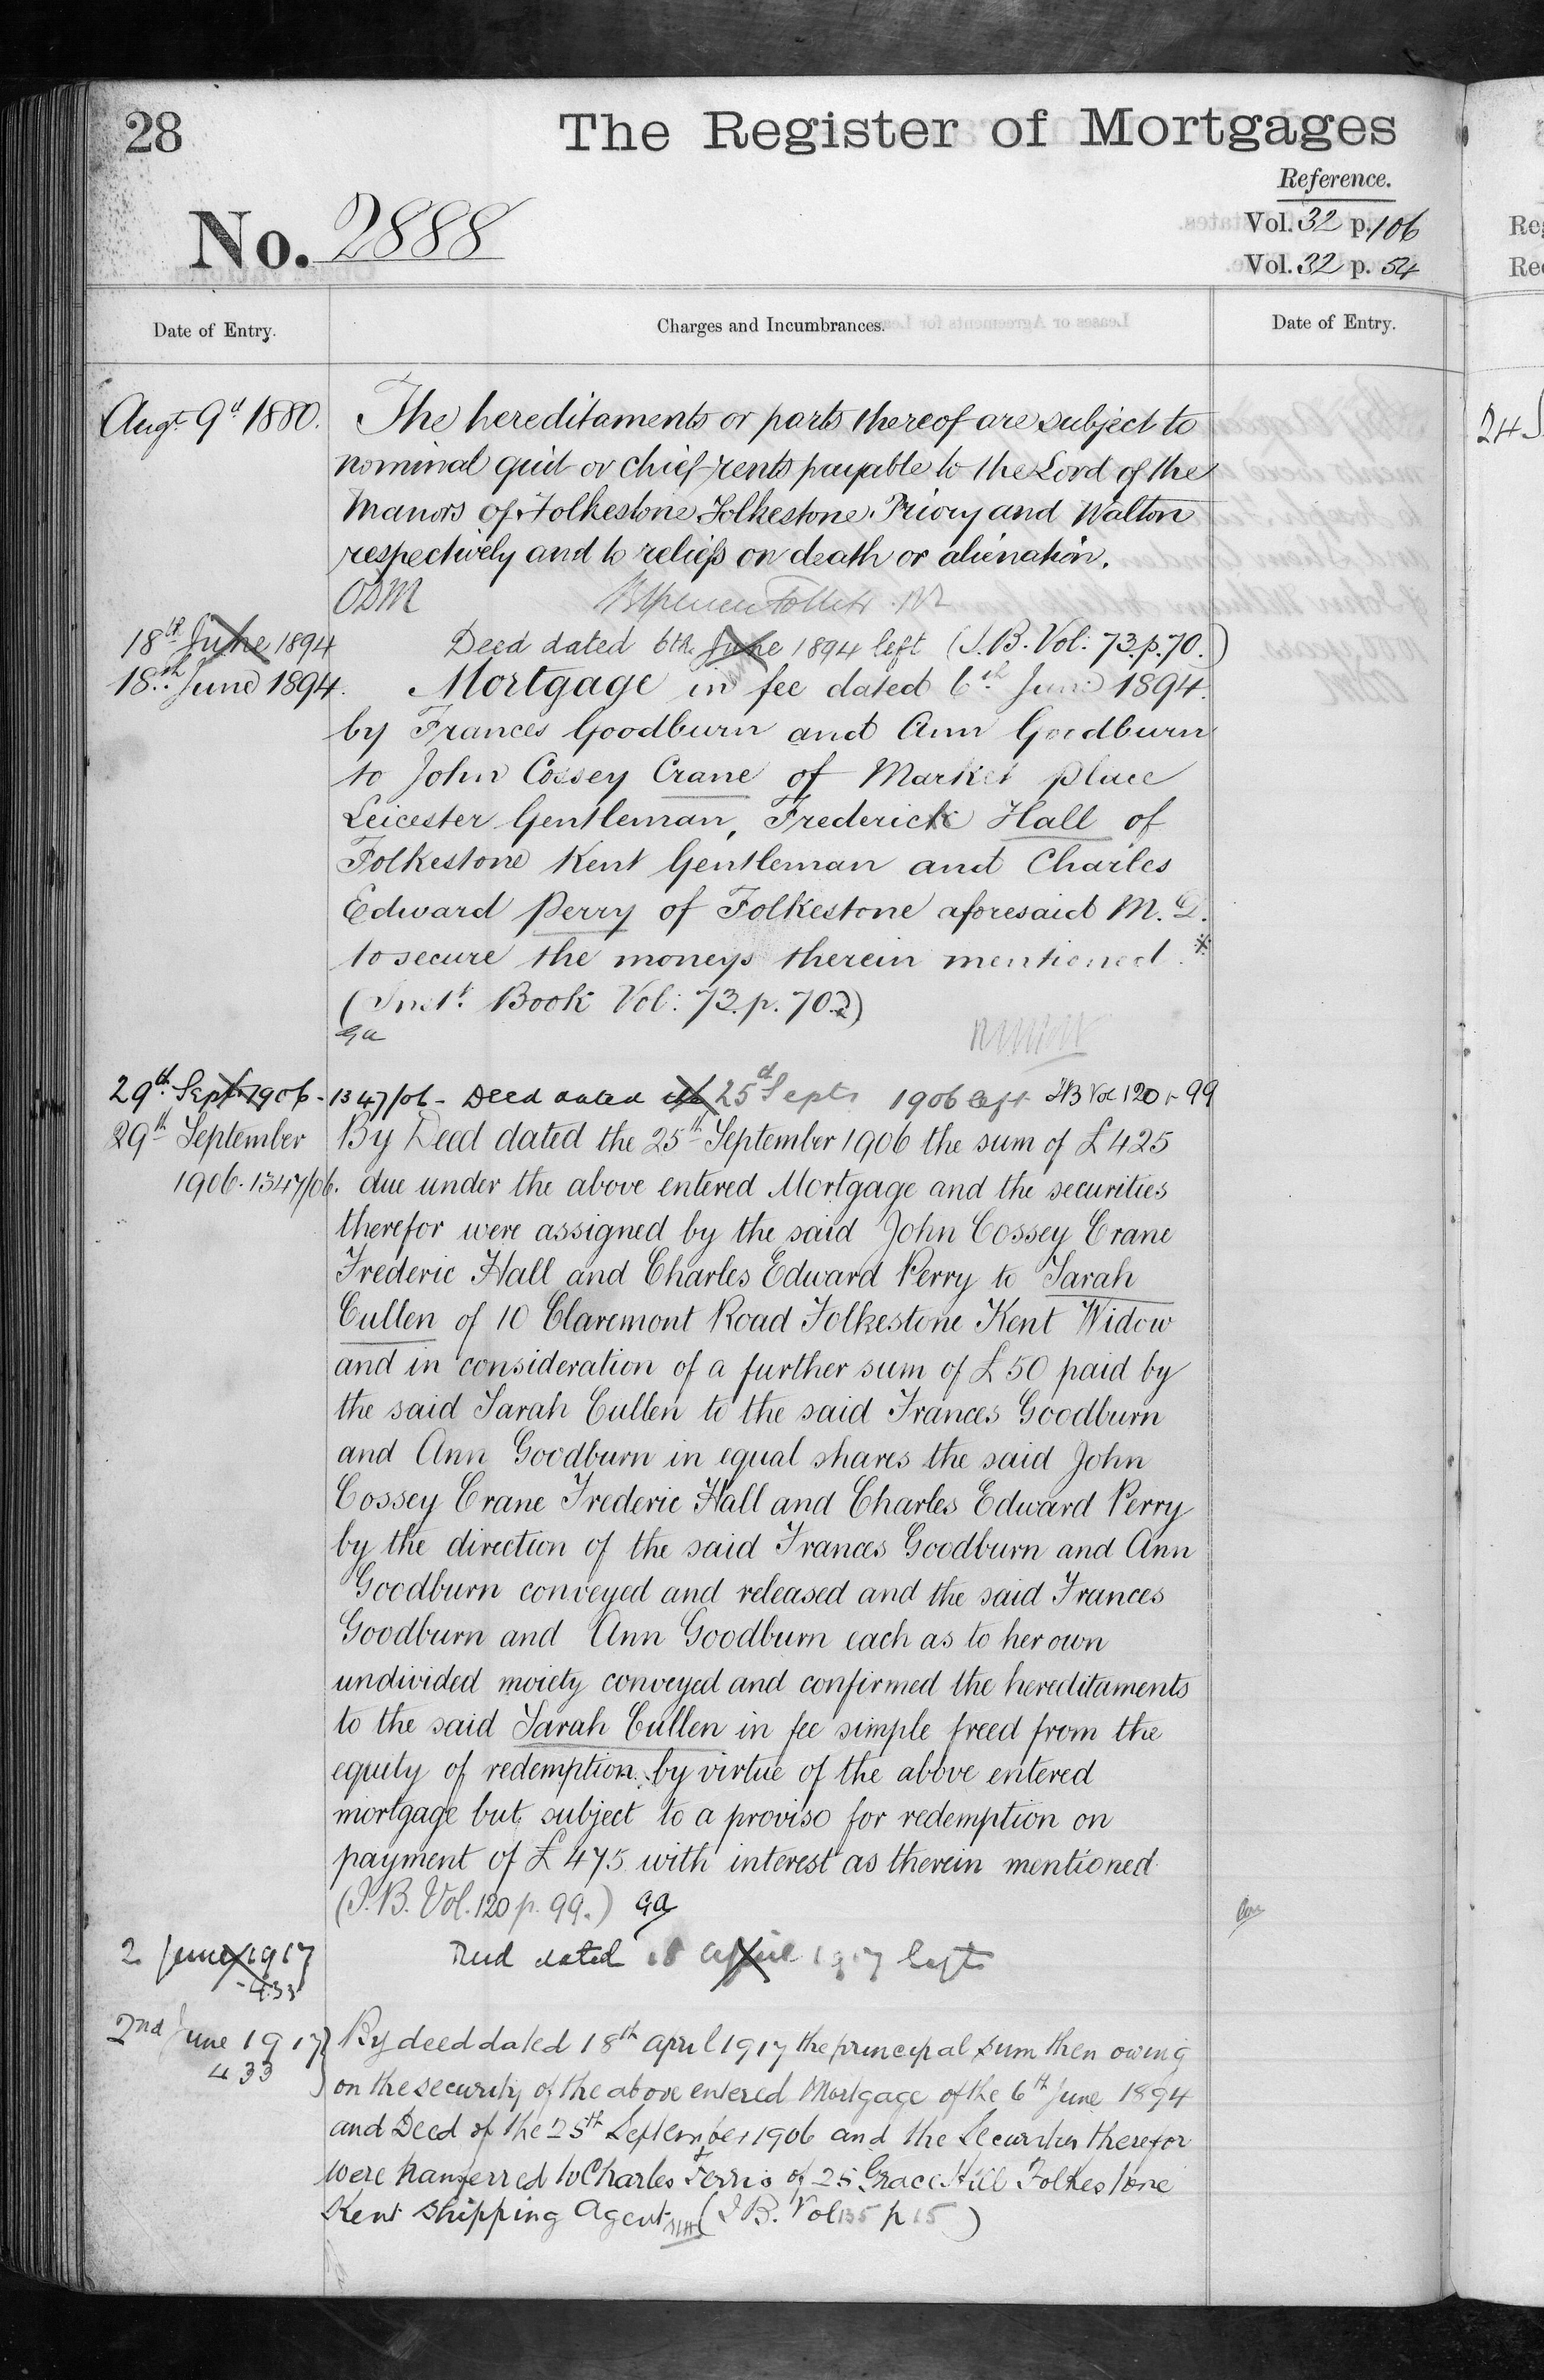 28
The Register of Mortgages
Reference.
No. 2888
Vol. 32 p. 106
Vol. 32 p. 54
Date of Entry.
Charges and Incumbrances.
Date of Entry.
Augt. 9th 1880.
The hereditaments or parts thereof are subject to
nominal quit or chief-rents payable to the Lord of the
Manors of Folkestone, Folkestone Priory and Walton
respectively and to reliefs on death or alienation.
ODM
18th June 1894
Deed dated 6th June 1894 left (I.B. Vol: 73. p. 70.)
18th June 1894.
Mortgage in fee dated 6th June 1894.
by Frances Goodburn and Ann Goodburn
to John Cossey Crane of Market place
Leicester Gentleman, Frederick Hall of
Folkestone Kent Gentleman and Charles
Edward Perry of Folkestone aforesaid M. D.
to secure the moneys therein mentioned. *
(Inst. Book Vol: 73. p. 70.)
Ga
29th Sept 1906 - 1347/06 - Deed dated 25th Septr 1906 left IB Vol 120 p 99
29th September
1906. 1347/06.
By Deed dated the 25th September 1906 the sum of £425
due under the above entered Mortgage and the securities
therefor were assigned by the said John Cossey Crane
Frederic Hall and Charles Edward Perry to Sarah
Cullen of 10 Claremont Road Folkestone Kent Widow
and in consideration of a further sum of £50 paid by
the said Sarah Cullen to the said Frances Goodburn
and Ann Goodburn in equal shares the said John
Cossey Crane Frederic Hall and Charles Edward Perry
by the direction of the said Frances Goodburn and Ann
Goodburn conveyed and released and the said Frances
Goodburn and Ann Goodburn each as to her own
undivided moiety conveyed and confirmed the hereditaments
to the said Sarah Cullen in fee simple freed from the
equity of redemption by virtue of the above entered
mortgage but subject to a proviso for redemption on
payment of £475 with interest as therein mentioned
(I.B. Vol. 120 p. 99.) Ga
2 June 1917
433
Deed dated 18 April 1917 left
2nd June 1917
433
By deed dated 18th April 1917 the principal sum then owing
on the security of the above entered Mortgage of the 6th June 1894
and Deed of the 25th September 1906 and the Securities therefor
were transferred to Charles Ferris of 25 Grace Hill Folkestone
Kent Shipping Agent (I.B. Vol 135 p 15)